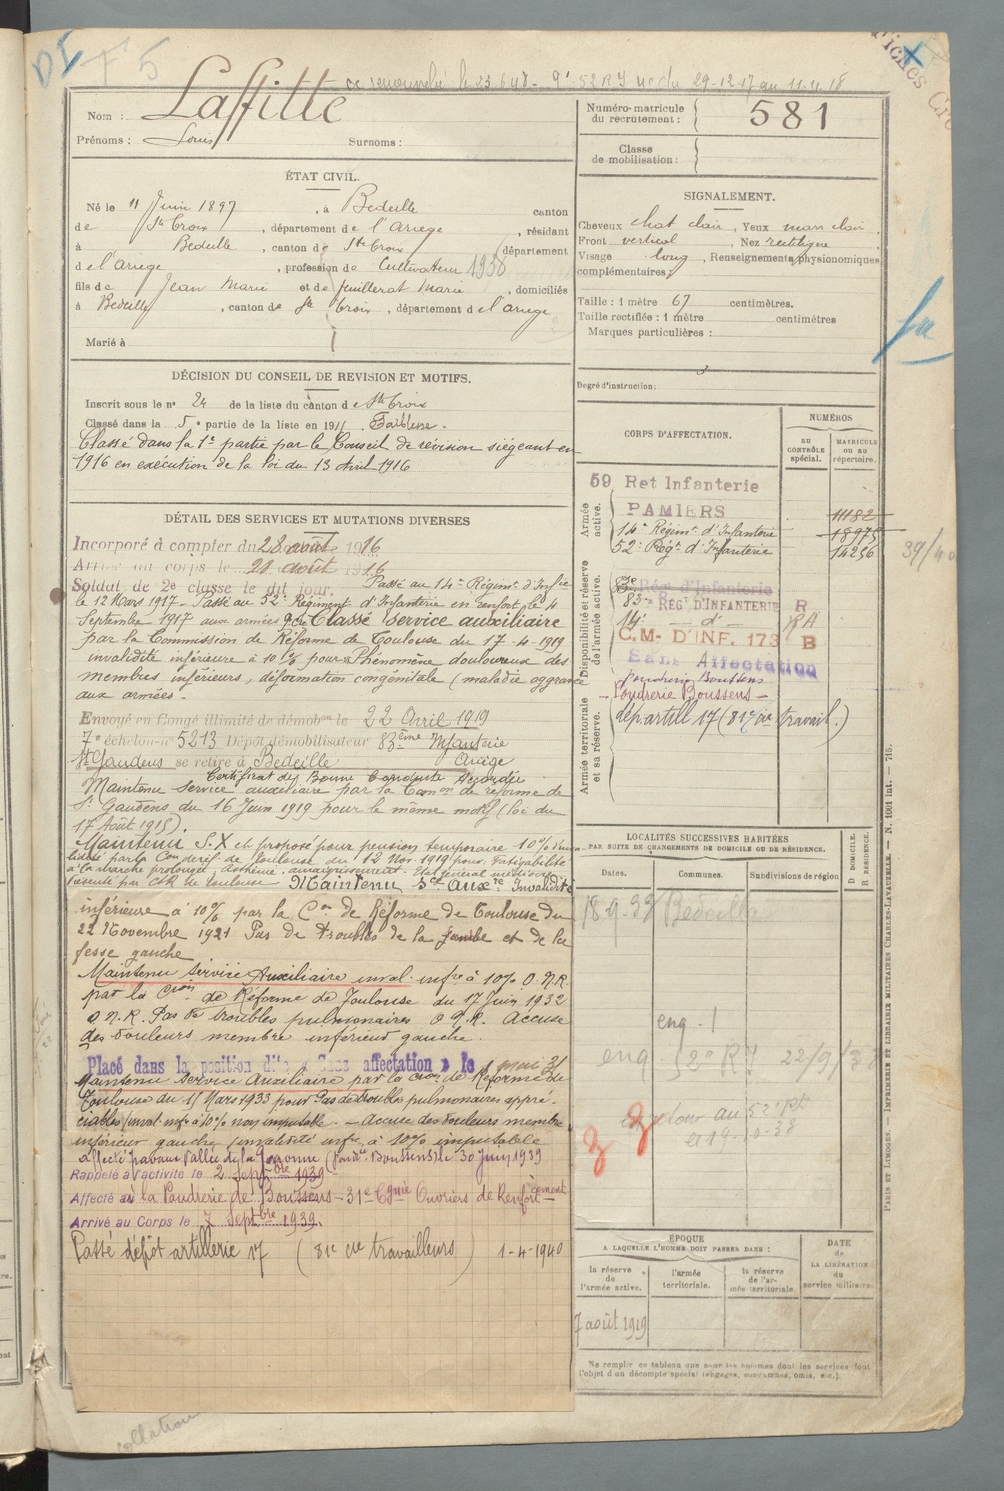 Fiches
F 5
ce renouvelée le 23.6.48 - 9e - 52 R I du 29-12-17 au 11-11-18
Nom : Laffitte
Prénoms : Louis Surnoms :
Numéro-matricule du recrutement : 581
Classe de mobilisation :
ÉTAT CIVIL.
Né le 11 Juin 1897, à Bedeille canton
de Ste Croix, département de l'Ariege, résidant
à Bedeille, canton de Ste Croix département
de l'Ariege, profession de Cultivateur 1936
fils de Jean Marie et de feuillerat Marie, domiciliés
à Bedeille, canton de Ste Croix, département de l'Ariege
Marié à
SIGNALEMENT.
Cheveux chat clair, Yeux mar clair,
Front vertical, Nez rectiligne
Visage long, Renseignements physionomiques
complémentaires,
Taille : 1 mètre 67 centimètres.
Taille rectifiée : 1 mètre centimètres
Marques particulières :
Degré d'instruction: 3
DÉCISION DU CONSEIL DE REVISION ET MOTIFS.
Inscrit sous le n° 24 de la liste du canton de Ste Croix
Classé dans la 5e partie de la liste en 191 . Faiblesse.
Classé dans la 1e partie par le Conseil de révision siégeant en
1916 en exécution de la loi du 13 Avril 1916
DÉTAIL DES SERVICES ET MUTATIONS DIVERSES
Incorporé à compter du 28 août 1916
Arrivé au corps le 28 août 1916
Soldat de 2e classe le dit jour. Passé au 14e Régimt. d'Infie
le 12 Mars 1917 - Passé au 52e Régiment d'Infanterie en renfort le 4
Septembre 1917 aux armées Classé Service auxiliaire
par la Commission de Réforme de Toulouse du 17-4-1919
invalidité inférieure à 10 % pour Phénomène douloureux des
membres inférieurs, déformation congénitale (maladie aggravée
aux armées.
Envoyé en Congé illimité de démobon le 22 Avril 1919
7e échelon-n° 5213 Dépôt démobilisateur 83ème Infanterie
St Gaudens se retire à Bedeille Ariège
Certificat de Bonne Conduite Accordé
Maintenu Service auxiliaire par la Comon de réforme de
St Gaudens du 16 Juin 1919 pour le même motif (loi du
17 Août 1915).
Maintenu S.X et proposé pour pension temporaire 10% d'inva
lidité par la Con de réf. de Toulouse du 12 Nov. 1919 pour Fatigabilité
à la marche prolongée, amaigrissement. Etat général médiocre
Présenté par C.S.R de Toulouse Maintenu Sce Auxre Invalidité
inférieure à 10% par la Con de Réforme de Toulouse du
22 Novembre 1921 Pas de troubles de la jambe et de la
fesse gauche
Maintenu Service Auxiliaire inval. infre à 10% O.N.R.
par la Cion de Réforme de Toulouse du 17 Juin 1932
O.N.R. Pas de troubles pulmonaires O.G.R. Accuse
des douleurs membre inférieur gauche.
Placé dans la position dite « Sans affectation » le mai 31
Maintenu Service Auxiliaire par la Cion de Réforme de
Toulouse du 15 Mars 1933 pour Pas de troubles pulmonaires appré-
ciables (inval infre à 10% non imputable - Accuse des douleurs membre
inférieur gauche invalidité infre à 10% imputable
Affecté Garonne (Poudrie Boussens) le 30 Juin 1939
Rappelé à l'activité le 2 Septbre 1939
Affecté à la Poudrerie de Boussens - 31e Cgnie Ouvriers de Renforcement
Arrivé au Corps le 7 Septbre 1939.
Passé dépôt artillerie 17 (81e cie travailleurs) 1-4-1940
CORPS D'AFFECTATION.
NUMÉROS
au CONTRÔLE spécial.
MATRICULE ou au répertoire.
Armée active.
59 Ret Infanterie
PAMIERS 11182
14e Régimt. d'Infanterie 18975
52e Régt. d'Infanterie 14256
39/40
Disponibilité et réserve de l'armée active.
Rég. d'Infanterie
83e RÉGt D'INFANTERIE R
14e - d° - RA
C.M- D'INF. 173 B
Sans Affectation
poudrerie Boussens
- Poudrerie Boussens -
Armée territoriale et sa réserve.
dép artill 17 (81e cie travail.)
LOCALITÉS SUCCESSIVES HABITÉES
PAR SUITE DE CHANGEMENTS DE DOMICILE OU DE RÉSIDENCE.
Dates. Communes. Subdivisions de région
D. DOMICILE. R. RÉSIDENCE.
18-9-37 Bedeille
enq. 1
enq 22/9/37
au 52e RI
ÉPOQUE
A LAQUELLE L'HOMME DOIT PASSER DANS :
la réserve de l'armée active.
l'armée territoriale.
la réserve de l'armée territoriale.
DATE de LA LIBÉRATION du service militaire.
7 août 1919
Ne remplir ce tableau que pour les hommes dont les services font
l'objet d'un décompte spécial (engagés, omis, etc.).
PARIS ET LIMOGES. — IMPRIMERIE ET LIBRAIRIE MILITAIRES CHARLES-LAVAUZELLE. — N. 1001 int. — 715.
collation